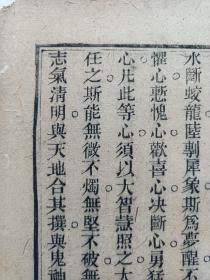 水斷蛟龍陸剸犀象斯爲夢醒不
懼心慙愧心歡喜心決斷心勇猛
心凡此等心須以大智慧照之大
任之斯能無微不燭無堅不破無
志氣清明與天地合其撰與鬼神